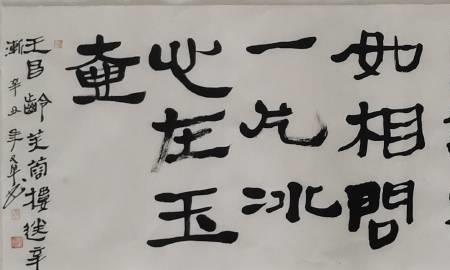 如相問
一片冰
心在玉
壺
王昌齡芙蓉樓送辛
漸 辛丑年